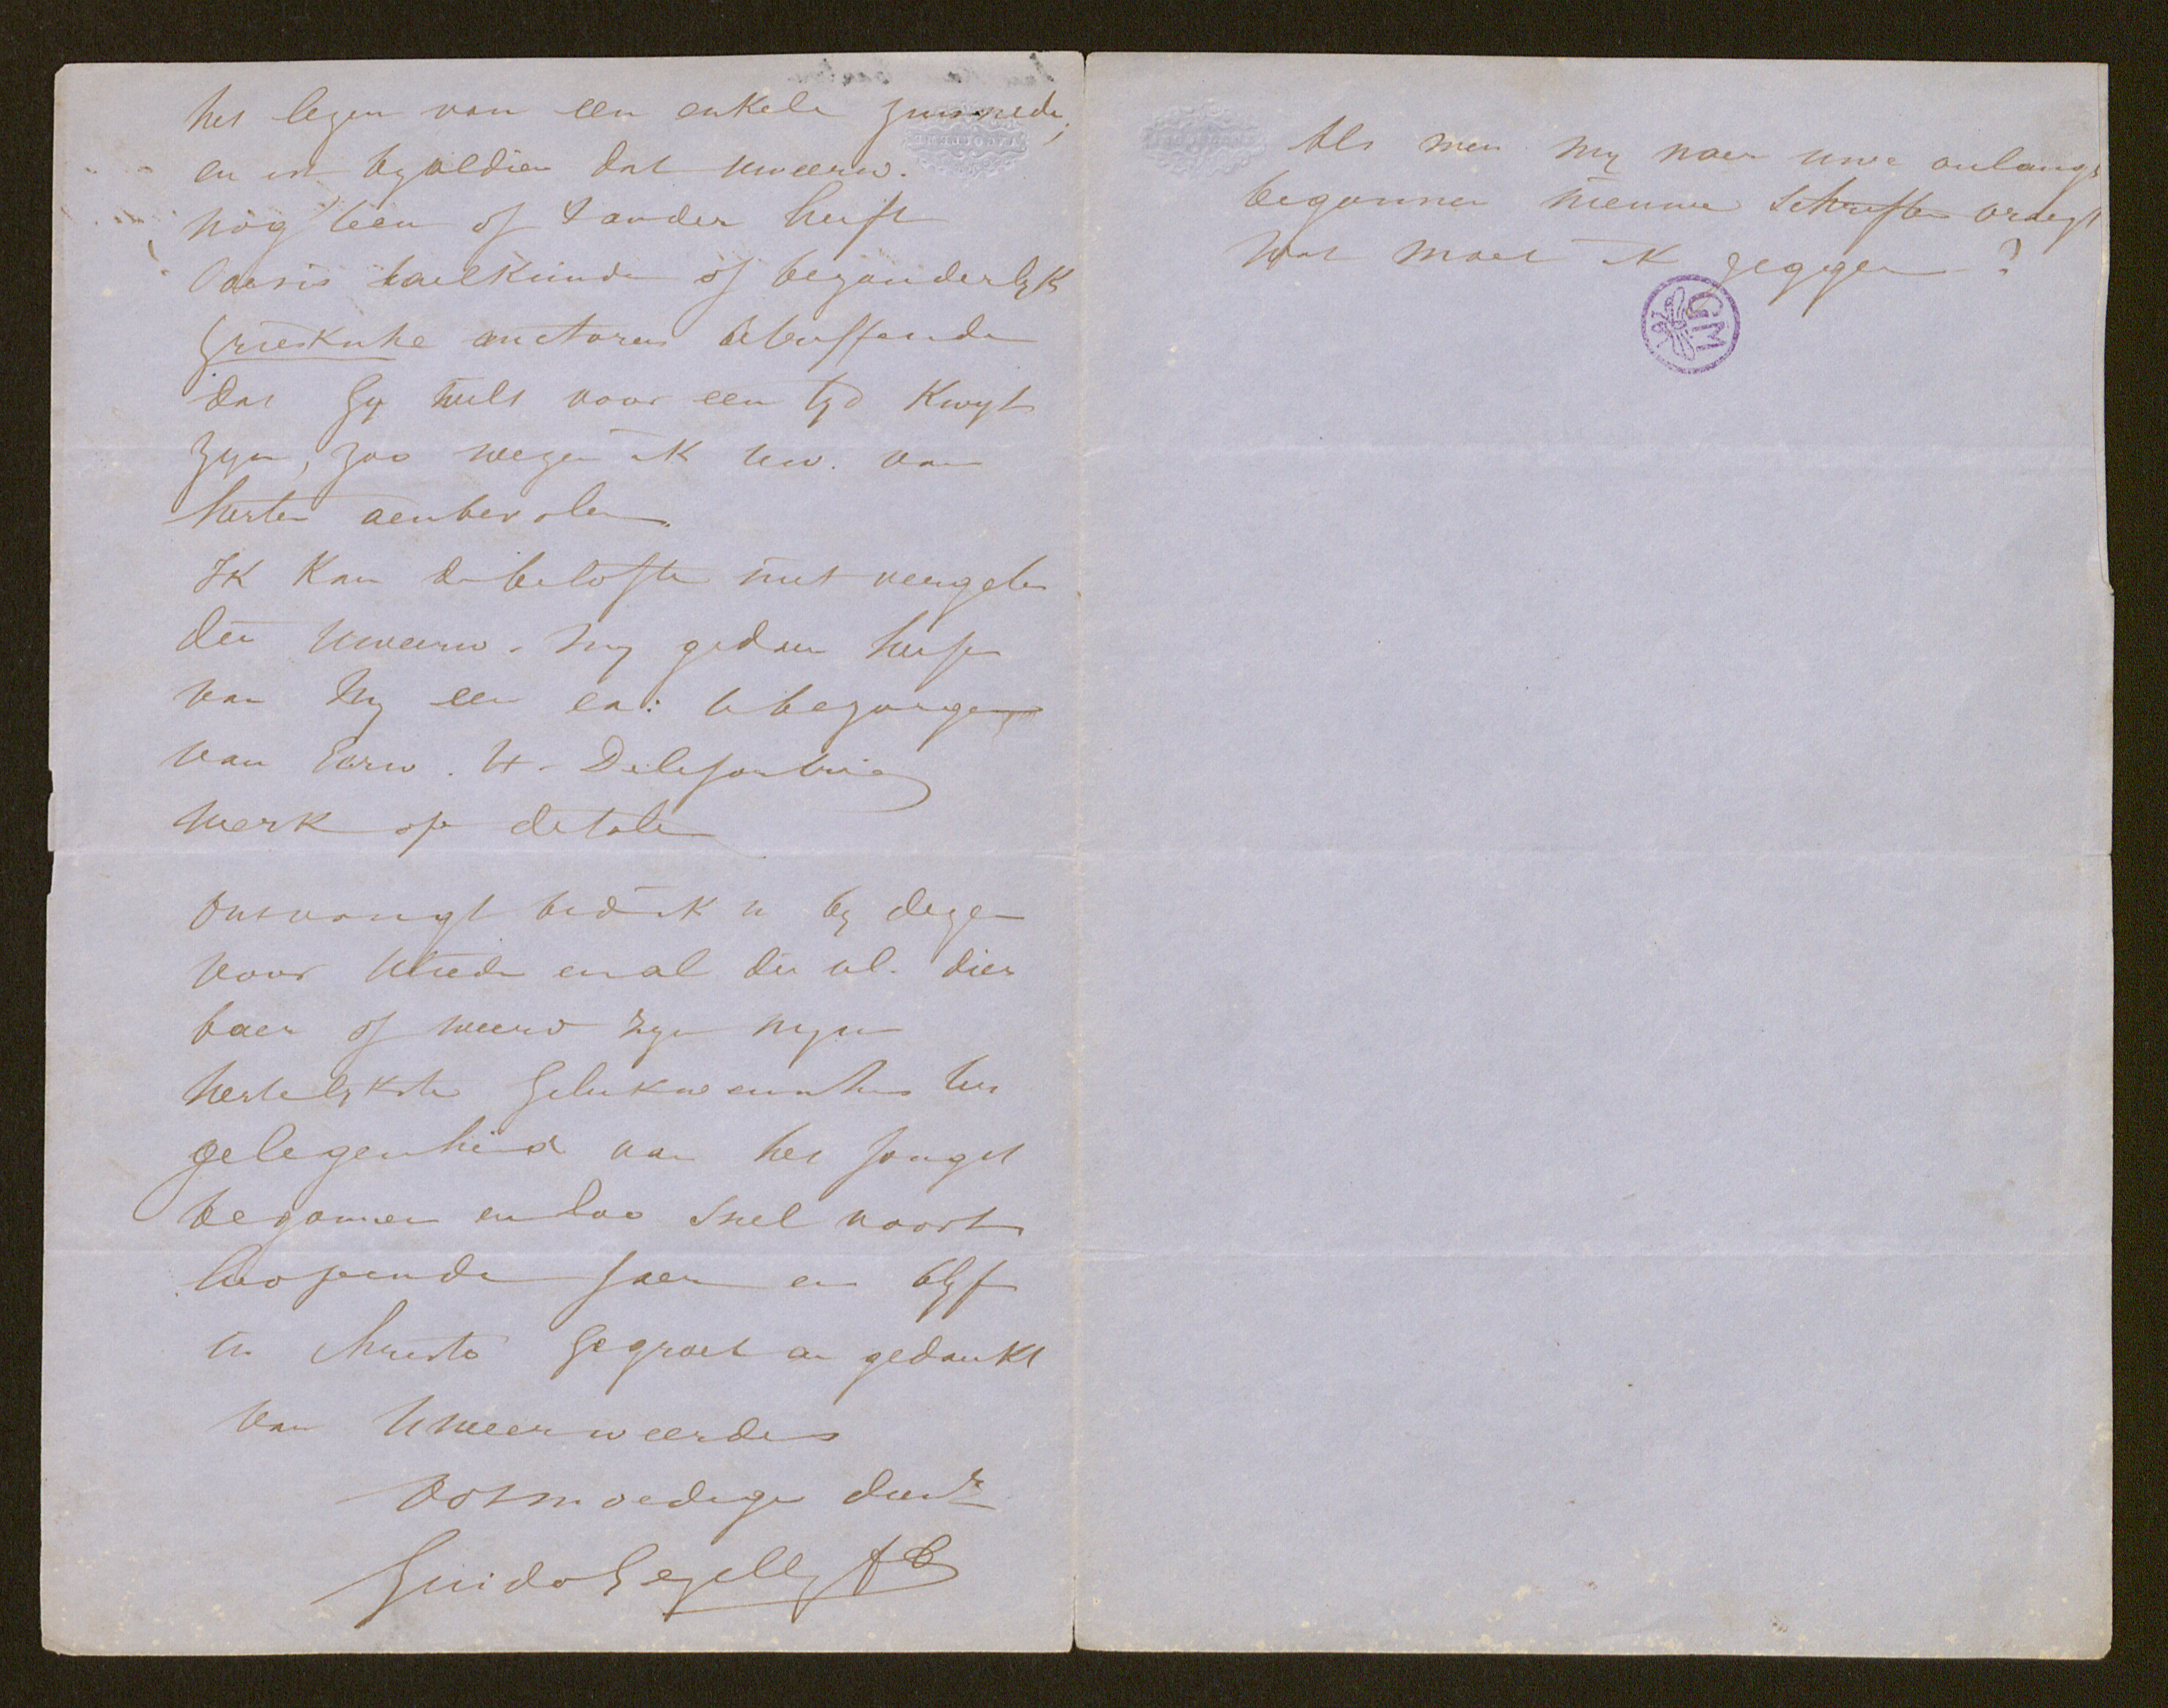 het lezen van een enkele zinsnede;
en in byaldien dat uweerw.
nog 't een of 't ander heeft
taelkunde of bezonderlyk
Grieksche auctoren betreffende
dat Gy wilt voor een tyd kwyt
zyn, zoo weze ik uw. van
herten aenbevolen.
Ik kan de belofte niet vergeten
die uweerw. my gedaen heeft
van my een ex: te bezorgen
van Eerw. H. Delefortrie
werk op de talen
Ontvangt bid ik u by dezen
voor Uliede en al die ul. dier
baer of weerd zyn myne
hertelykste gelukwenschen ter
gelegenheid van het jongst
begonnen en zoo snel voort
loopende jaer en blyf
in Christo gegroet en gedankt
van Uweerweerdens
ootmoedige dienr
Guido Gezelle
Als men my naer uwe onlangs
begonnen nieuwe schriften vraegt
wat moet ik zeggen?
GM